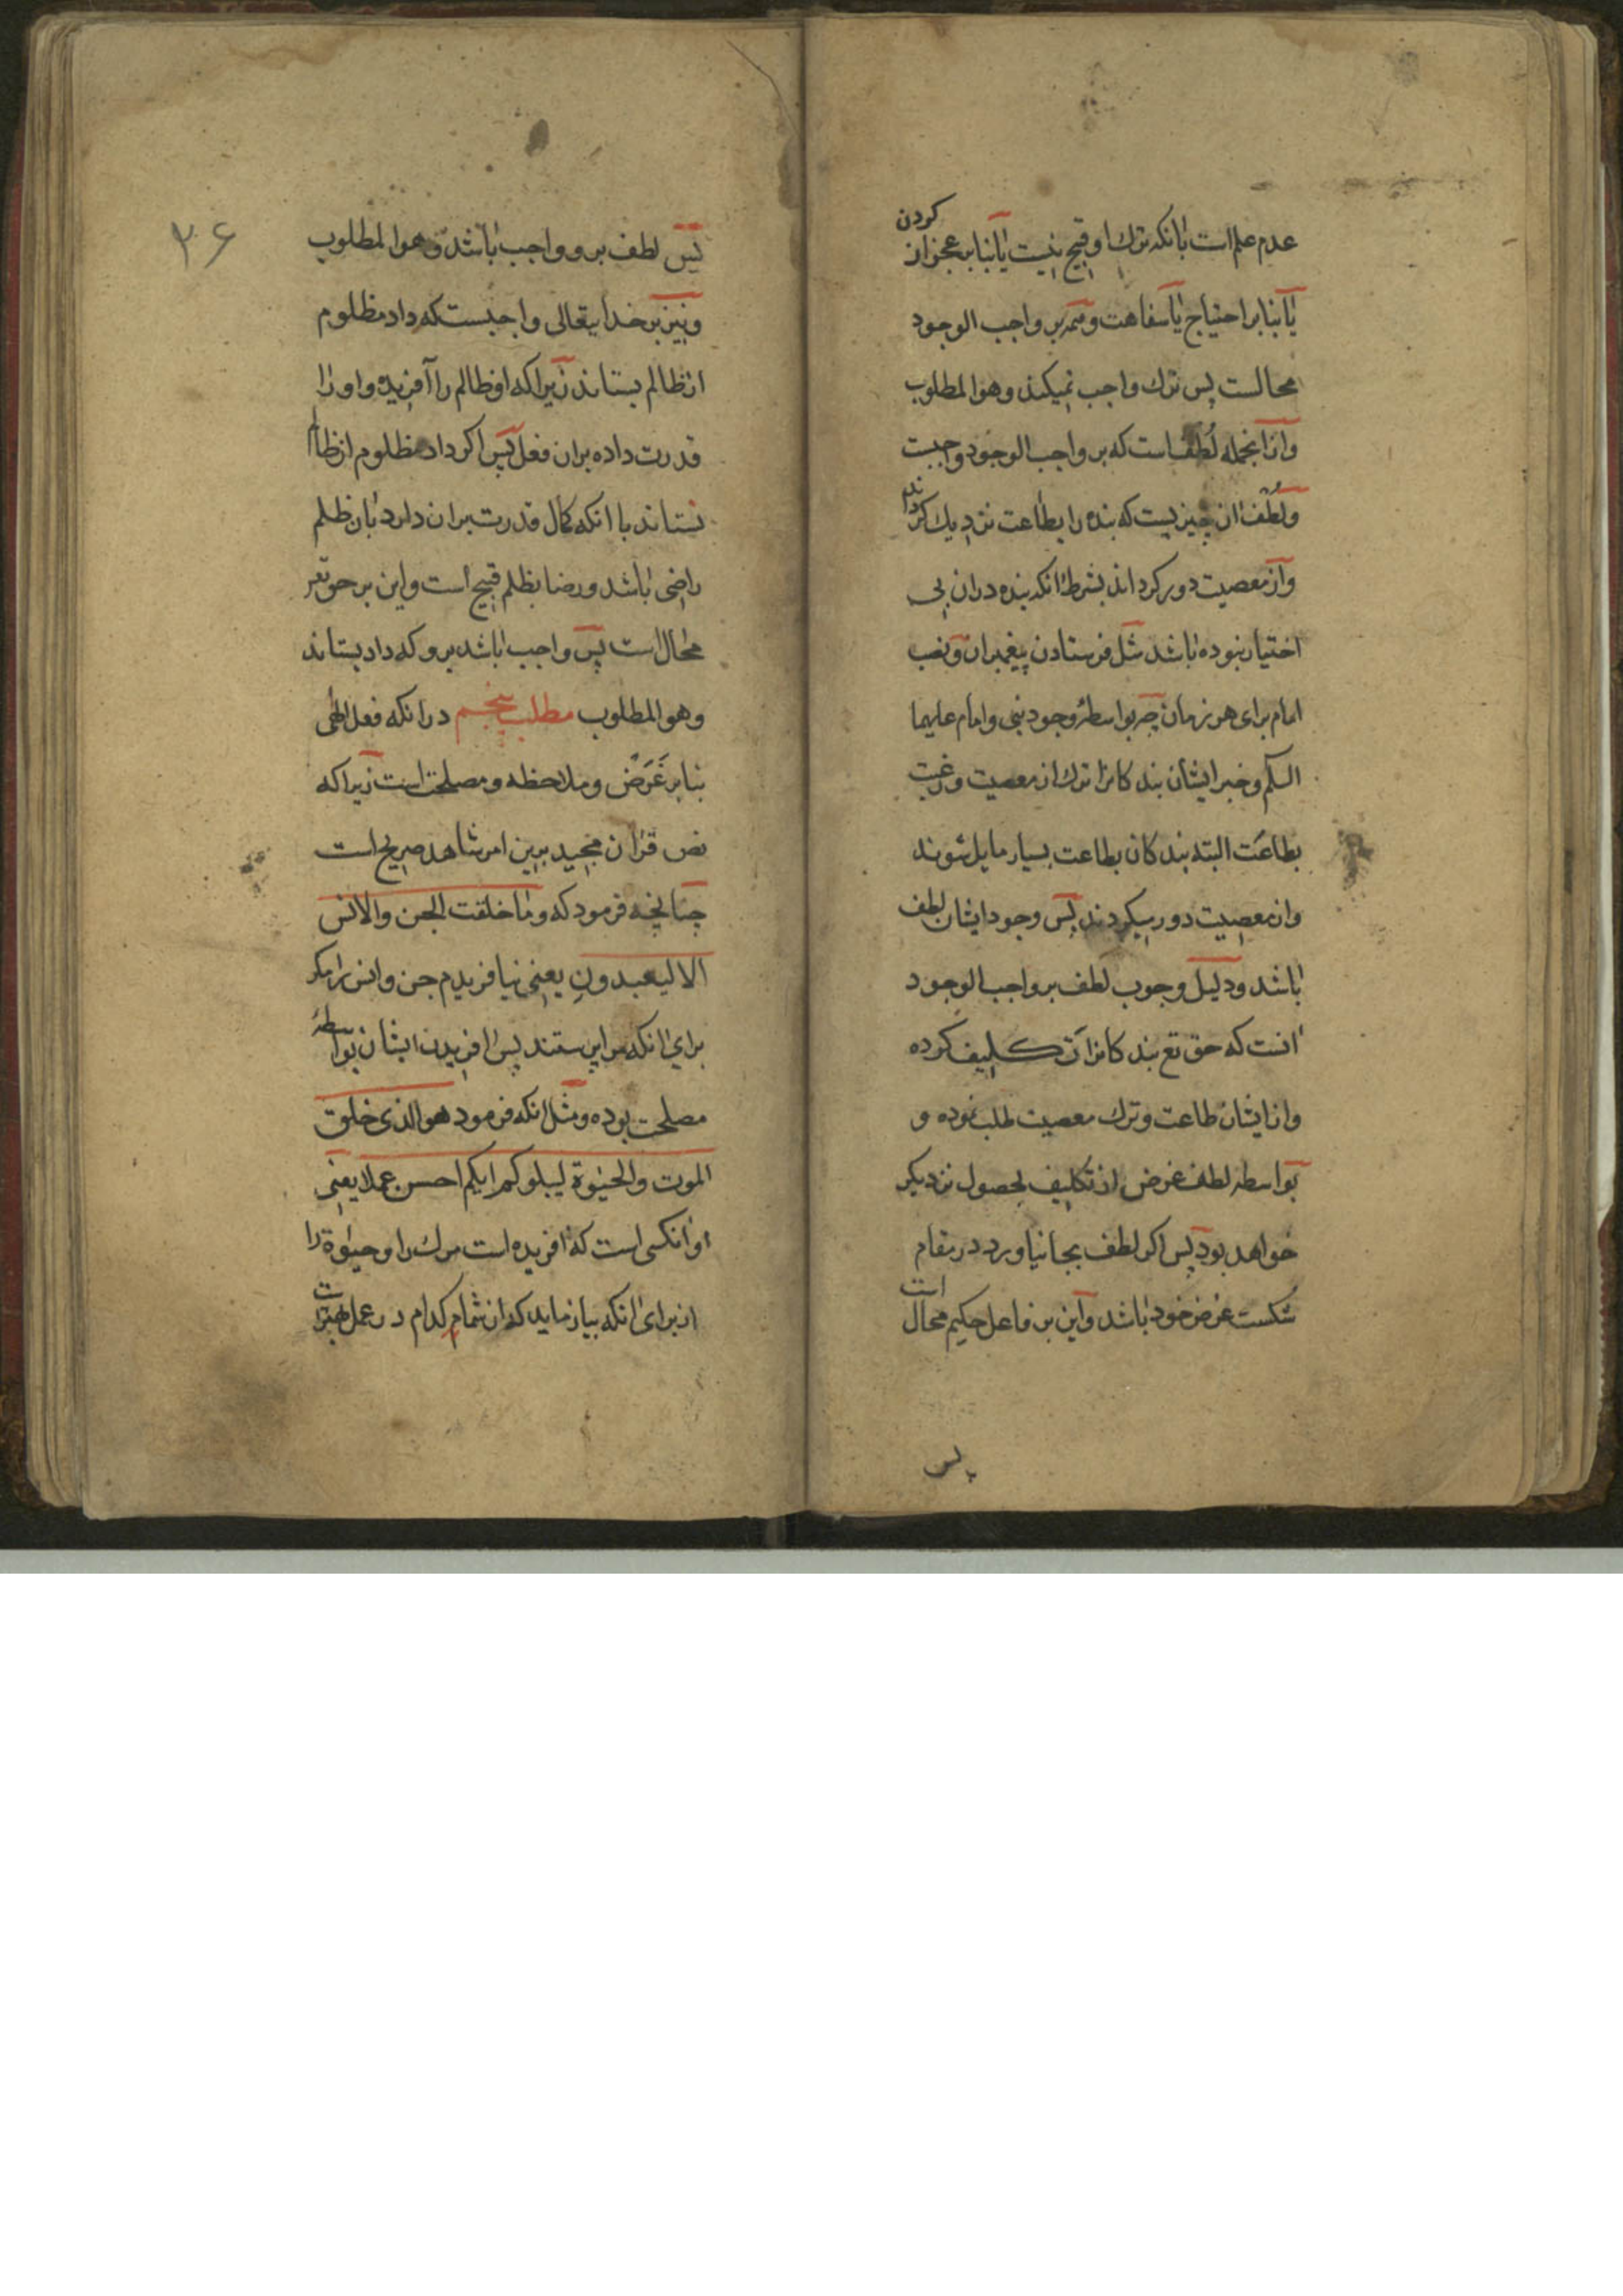 عدم علم است بانکه ترک او قبیح نیست یا بنابر عجز از کردن
یا بنا بر احتیاج یا سفاهت و همه بر واجب الوجود
محالست پس ترک واجب نمیکند وهو المطلوب
و از انجمله لُطْفست که بر واجب الوجود واجبست
و لُطْف ان چیزیست که بنده را بطاعت نزدیک کرداند
و از معصیت دور کرداند بشرط انکه بنده در ان بی
اختیار نبوده باشد مثل فرستادن پیغمبران و نصب
امام برای هر زمان چه بواسطهٔ وجود نبی و امام علیهما
السلم و خبر ایشان بندکانرا ترک از معصیت و رغبت
بطاعت البته بندکان بطاعت بسیار مایل شوند
و از معصیت دور میکردند پس وجود ایشان لطف
باشد و دلیل وجوب لطف بر واجب الوجود
انست که حق تع بندکانرا تکلیف کرده
و از ایشان طاعت و ترک معصیت طلب نموده و
بواسطه لطف غرض از تکلیف بحصول نزدیکر
خواهد بود پس اکر لطف بجا نیاورد در مقام
شکست غرض خود باشد و این بر فاعل حکیم محال است
پس
۲۶
پس لطف برو واجب باشد وهو المطلوب
و نیز بر خدایتعالی واجبست که داد مظلوم
از ظالم بستاند زیرا که او ظالم را آفریده و او را
قدرت داده بران فعل پس اکر داد مظلوم از ظالم
نستاند با انکه کمال قدرت بران دارد بان ظلم
راضی باشد و رضا بظلم قبیح است و این بر حق تع
محال است پس واجب باشد برو که داد بستاند
وهو المطلوب مطلب پنجم در انکه فعل الهی
بنابر غَرَض و ملاحظه و مصلحت است زیرا که
نص قران مجید برین امر شاهد صریح است
چنانچه فرمود که وما خلقت الجن والانس
الا لیعبدونِ یعنی نیافریدم جن و انس را مکر
برای انکه مرا پرستند پس افریدن ایشان بواسطهٔ
مصلحت بوده و مثل انکه فرمود هو الذی خلق
الموت والحیٰوة لیبلوکم ایکم احسن عملا یعنی
او انکسی است که افریده است مرک را و حیٰوة را
از برای انکه بیازماید که از شما کدام در عمل بهتر است